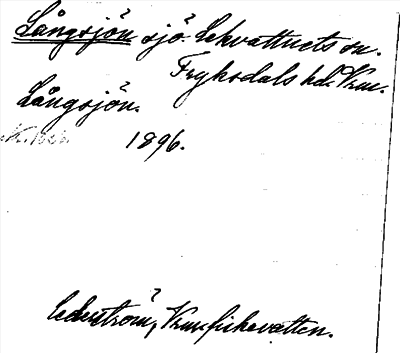 Långsjön sjö Lekvattnets sn.
Fryksdals hd. Vrm.
Långsjön.
1896.
Cederström, Vrm fiskevatten.